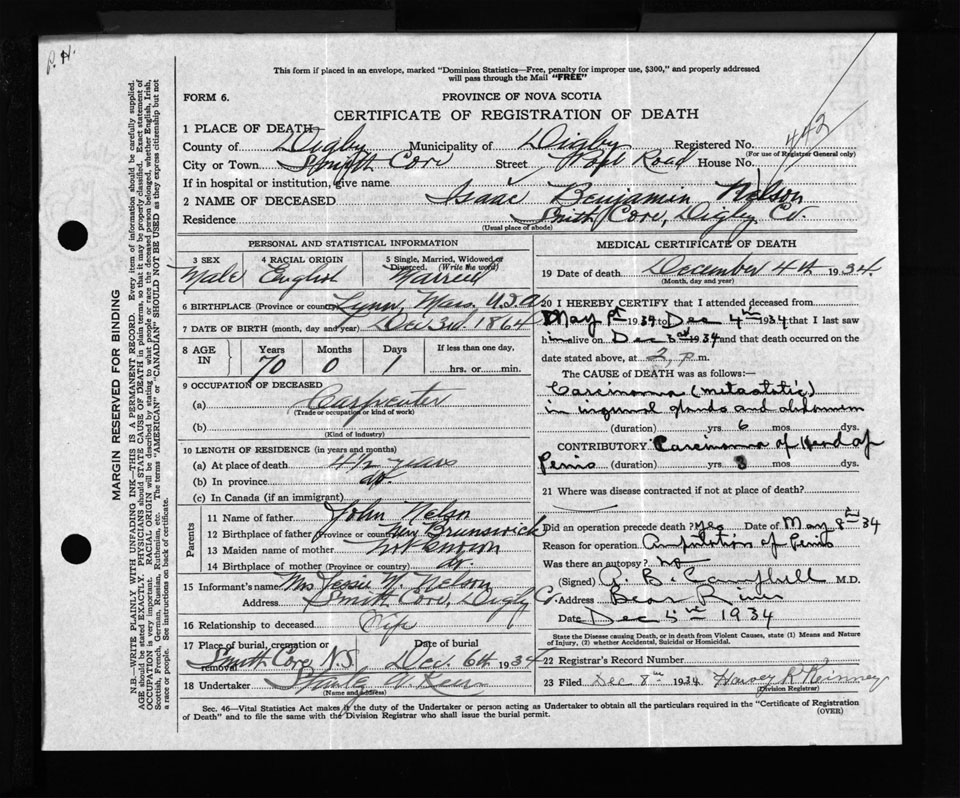 P. H.
This form if placed in an envelope, marked "Dominion Statistics—Free, penalty for improper use, $300," and properly addressed
will pass through the Mail "FREE"
FORM 6.
PROVINCE OF NOVA SCOTIA
CERTIFICATE OF REGISTRATION OF DEATH
442
1 PLACE OF DEATH
County of Digby Municipality of Digby Registered No.
(For use of Registrar General only)
City or Town Smith Cove Street Road House No.
If in hospital or institution, give name
2 NAME OF DECEASED Isaac Benjamin Nelson
Residence Smith Cove, Digby Co.
(Usual place of abode)
PERSONAL AND STATISTICAL INFORMATION
3 SEX Male
4 RACIAL ORIGIN English
5 Single, Married, Widowed or
Divorced. (Write the word)
Married
6 BIRTHPLACE (Province or country) Lynn, Mass. U.S.A.
7 DATE OF BIRTH (month, day and year) Dec 3rd. 1864
8 AGE IN Years Months Days If less than one day,
70 0 1 hrs. or min.
9 OCCUPATION OF DECEASED
(a) Carpenter
(Trade or occupation or kind of work)
(b)
(Kind of Industry)
10 LENGTH OF RESIDENCE (in years and months)
(a) At place of death 4½ years
(b) In province do
(c) In Canada (if an immigrant)
Parents
11 Name of father John Nelson
12 Birthplace of father (Province or country) New Brunswick
13 Maiden name of mother not known
14 Birthplace of mother (Province or country) do.
15 Informant's name Mrs Jessie M. Nelson
Address Smith Cove, Digby Co.
16 Relationship to deceased Wife
17 Place of burial, cremation or removal Smith Cove N.S.
Date of burial Dec. 6th 1934
18 Undertaker Stanley
(Name and address)
MEDICAL CERTIFICATE OF DEATH
19 Date of death December 4th 1934.
(Month, day and year)
20 I HEREBY CERTIFY that I attended deceased from
May 1st 1934 to Dec 4th 1934 that I last saw
him alive on Dec 3rd 1934 and that death occurred on the
date stated above, at 2 p.m.
The CAUSE OF DEATH was as follows:—
Carcinoma (metastatic)
in inguinal glands and abdomen
(duration) yrs 6 mos. dys.
CONTRIBUTORY Carcinoma of Head of
Penis (duration) yrs 8 mos dys.
21 Where was disease contracted if not at place of death?
Did an operation precede death? Yes Date of May 8th 34
Reason for operation Amputation of Penis
Was there an autopsy? no
(Signed) B. Campbell M.D.
Address Bear River
Date Dec 5th 1934
State the Disease causing Death, or in death from Violent Causes, state (1) Means and Nature
of Injury, (2) whether Accidental, Suicidal or Homicidal.
22 Registrar's Record Number
23 Filed Dec 8th 1934 R Kinney
(Division Registrar)
Sec. 46—Vital Statistics Act makes it the duty of the Undertaker or person acting as Undertaker to obtain all the particulars required in the "Certificate of Registration
of Death" and to file the same with the Division Registrar who shall issue the burial permit.
(OVER)
MARGIN RESERVED FOR BINDING
N.B.—WRITE PLAINLY WITH UNFADING INK—THIS IS A PERMANENT RECORD. Every item of information should be carefully supplied.
AGE should be stated EXACTLY. PHYSICIANS should STATE CAUSE OF DEATH in plain terms, so that it may be properly classified. Exact statement of
OCCUPATION is very important. RACIAL ORIGIN will be described by stating to what people or race the deceased person belonged, whether English, Irish,
Scottish, French, German, Russian, Ruthenian, etc. The terms "AMERICAN" or "CANADIAN" SHOULD NOT BE USED as they express citizenship but not
a race or people. See instructions on back of certificate.